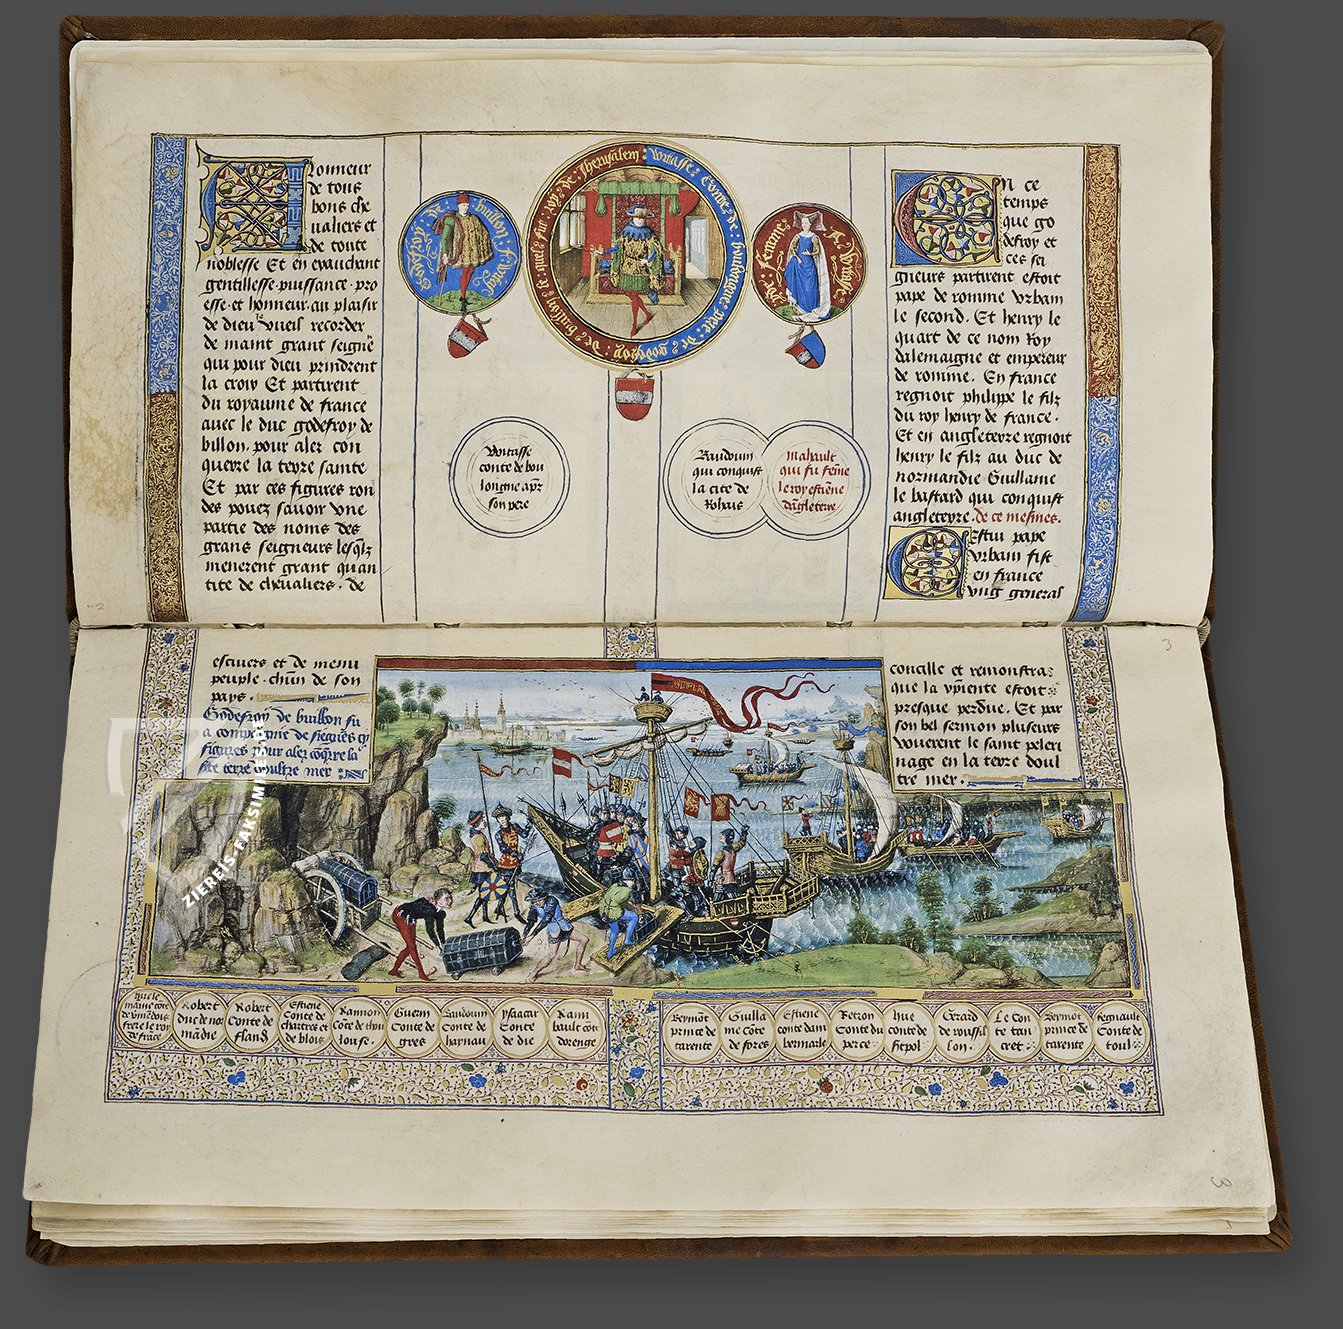 Lonneur
de tous
bons che
ualiers et
de toute
noblesse Et en exauchant
gentillesse puissance pro
esse et honneur au plaisir
de dieu Vueil recorder
de maint grant seigne
qui pour dieu prindrent
la croix Et partirent
du royaume de france
auec le duc godefroy de
billon pour aler con
querre la terre sainte
Et par ces figures ron
des pouez sauoir vne
partie des noms des
grans seigneurs lesqlz
menerent grant quan
tite de cheualiers . de
de : buillon :
Vvitasse : Conte : de : boulongne : pere : de : godefroy : de : buillon : le : quel : fut : roy : de : Jherusalem :
Vvitasse
conte de bou
longne aps
son pere
Baudouin
qui conquist
la cite de
Rohais
mahault
qui fu feme
le roy estiene
dagleterre
En ce
temps
que go
defroy et
ces sei
gneurs partirent estoit
pape de romme vrbain
le second. Et henry le
quart de ce nom Roy
dalemaigne et empereur
de romme. En france
regnoit philippe le filz
du roy henry de france .
Et en angleterre regnoit
henry le filz au duc de
normandie Guillame
le bastard qui conquist
angleterre . de ce mesmes.
Cestui pape
vrbain fist
en france
vng general
2
3
escuiers et de menu
peuple . chun de son
pays .
Godefroy de buillon fu
a compaignie de
figures pour aler coqrre la
ste terre doultre mer
concille et remonstra
que la estoit
presque perdue. Et par
son bel sermon pluseurs
vouerent le saint peleri
nage en la terre doul
tre mer .
ZIEREIS-FAKSIMILE
hue le
maine cote
de
frere le roy
de frace
Robert
duc de nor
madie
Robert
Conte de
fland
Estiene
Conte de
chartres et
de blois
Ramon
cote de thou
louse .
Guem
Conte de
gres
Baudouin
Conte de
haynau
ysaacar
Conte
de die
Raim
bault cote
dorenge
Beymot
prince de
tarente
Guilla
me cote
de fores
Estiene
conte dau
bermarle
Retron
Conte du
perce
hue
conte de
sitpol
Gerard
de roussil
lon .
Le Con
te tan
cret
Beymot
prince de
tarente
Regnault
Conte de
toul
3